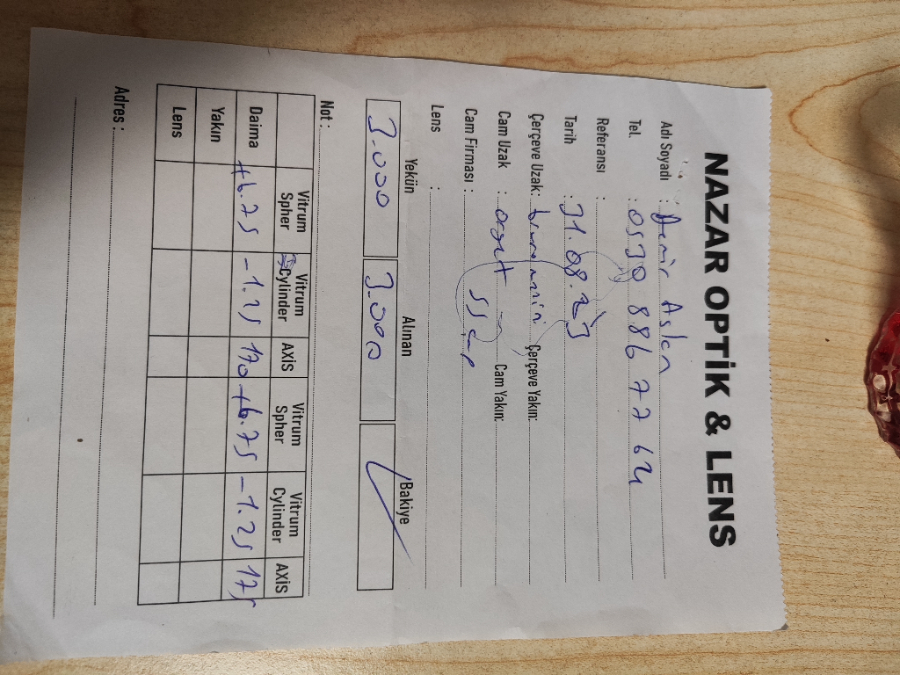 NAZAR OPTİK & LENS
Adı Soyadı : Demir Aslan
Tel. : 0530 886 77 64
Referansı :
Tarih : 31.08.23
Çerçeve Uzak: Çerçeve Yakın:
Cam Uzak : Cam Yakın:
Cam Firması :
Lens :
Yekün Alınan Bakiye
3.000 3.000
Not :
Vitrum Spher Vitrum Cylinder AXİS Vitrum Spher Vitrum Cylinder AXİS
Daima +6.75 -1.25 170 +6.75 -1.25 175
Yakın
Lens
Adres :